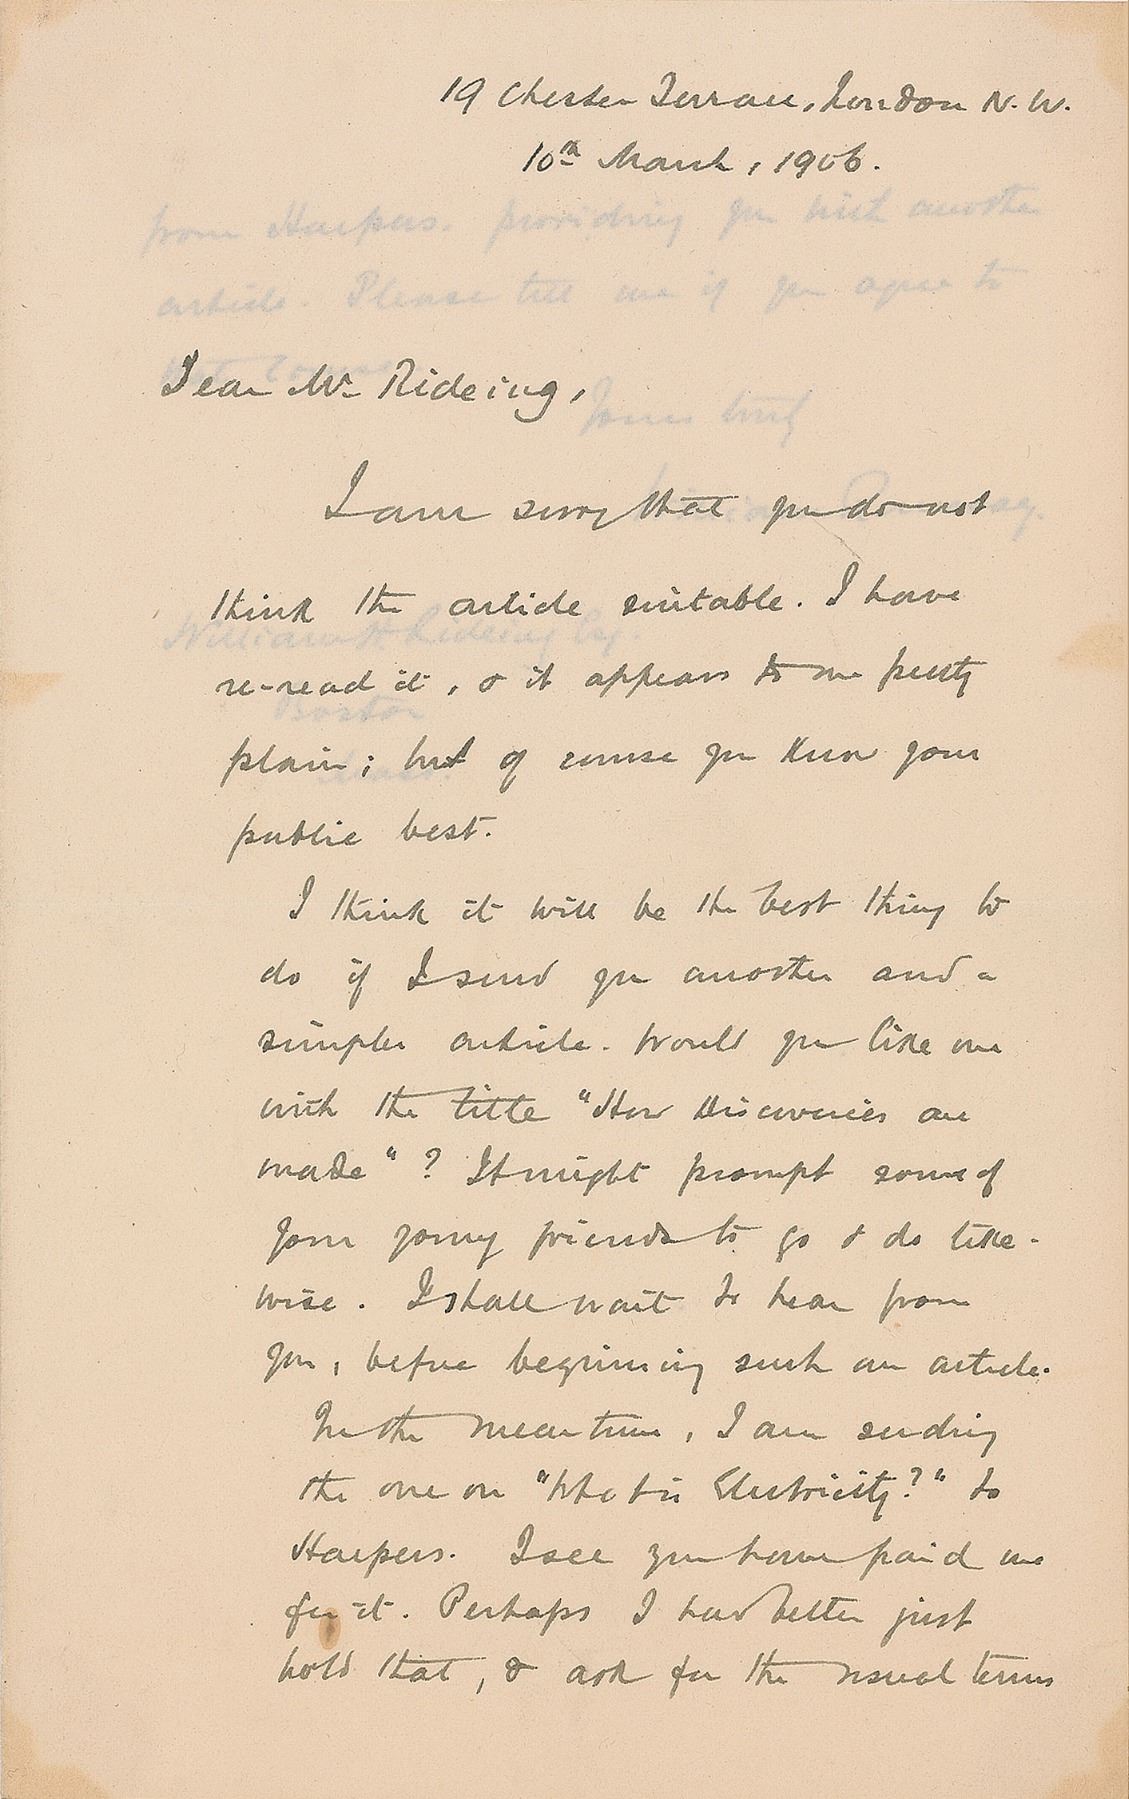 19 Chester Terrace, London N.W.
10th March, 1906.
from Harpers. providing you with another
article. Please tell me if you agree to
Dear Mr Rideing,
Yours truly
I am sorry that you do not
think the article suitable. I have
William H Rideing Esq.
re-read it, & it appears to me pretty
Boston
plain; but of course you know your
public best.
I think it will be the best thing to
do if I send you another and a
simpler article. Would you like one
with the title "How Discoveries are
made"? It might prompt some of
your young friends to go & do like-
wise. I shall wait to hear from
you, before beginning such an article.
In the meantime, I am sending
the one on "What is Electricity?" to
Harpers. I see you have paid me
for it. Perhaps I had better just
hold that, & ask for the usual terms